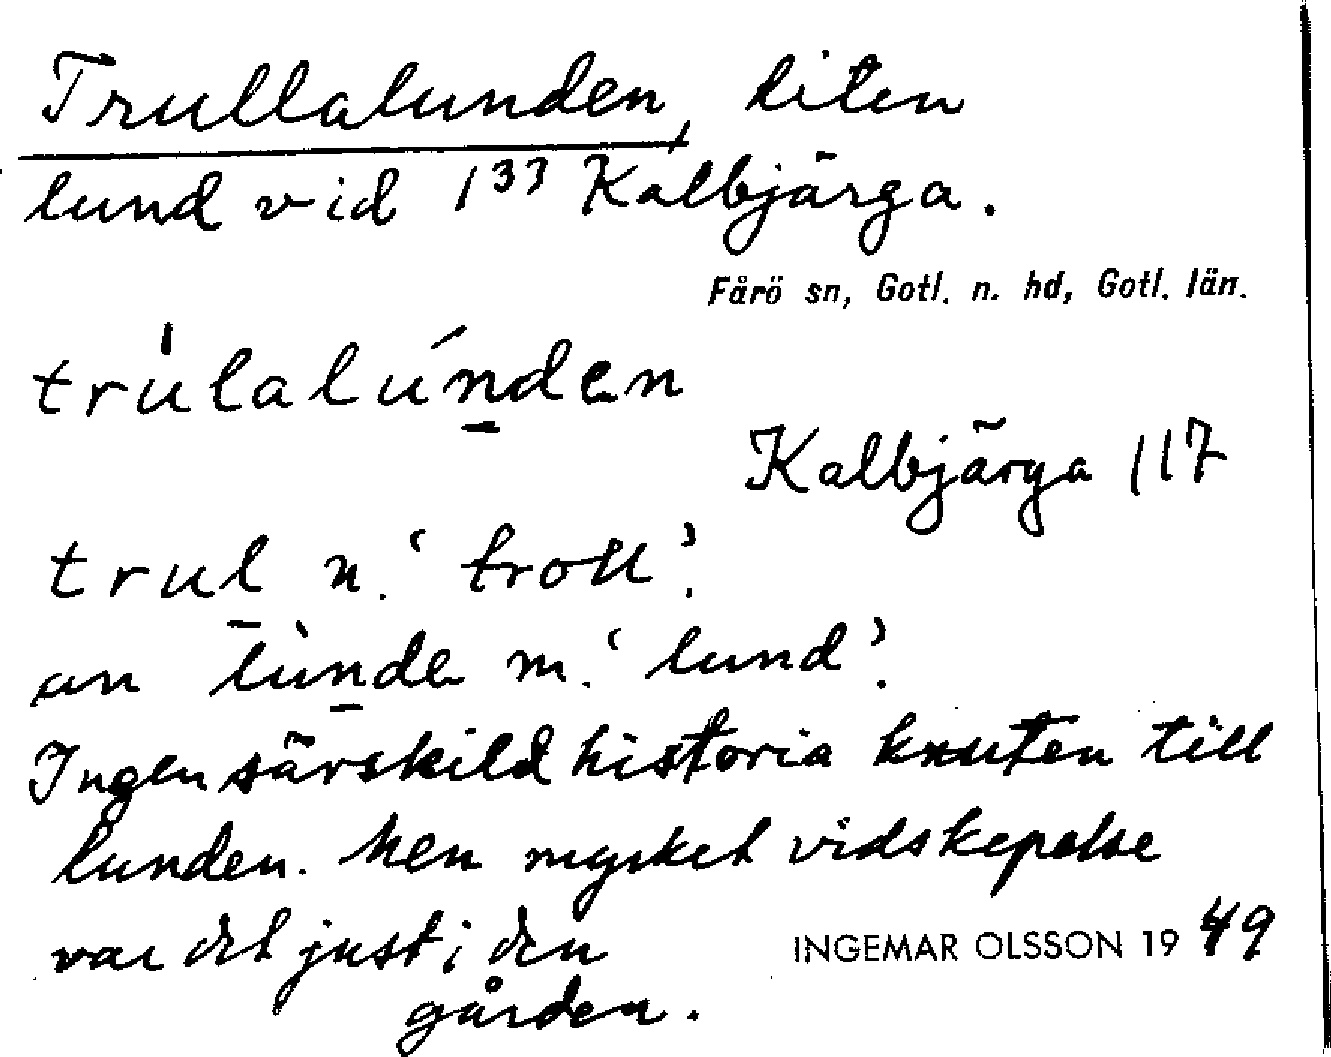 Trullalunden, liten
lund vid 133 Kalbjärga.
Fårö sn, Gotl. n. hd, Gotl. län.
trulalúnden
Kalbjärga 117
trul n. ‘troll’.
an lùnde m. ‘lund’.
Ingen särskild historia knuten till
lunden. Men mycket vidskepelse
var det just i den
gården.
INGEMAR OLSSON 1949